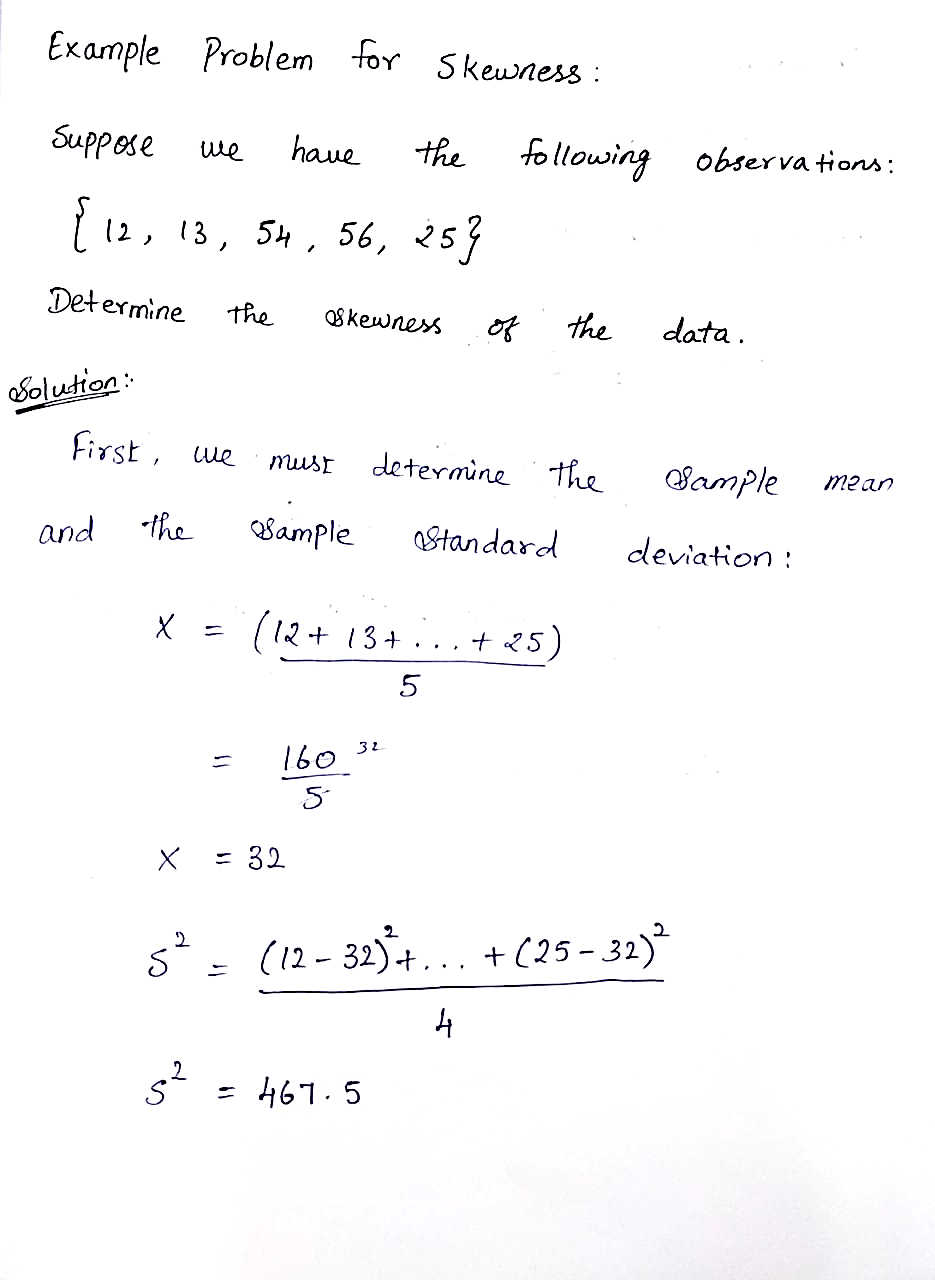 Example Problem for Skewness :
Suppose we have the following observations:
{ 12, 13, 54, 56, 25}
Determine the skewness of the data.
Solution:
First, we must determine the sample mean
and the sample standard deviation :
X = (12 + 13 + ... + 25)
5
= 160 32
5
X = 32
S² = (12 - 32)² + ... + (25 - 32)²
4
S² = 467.5